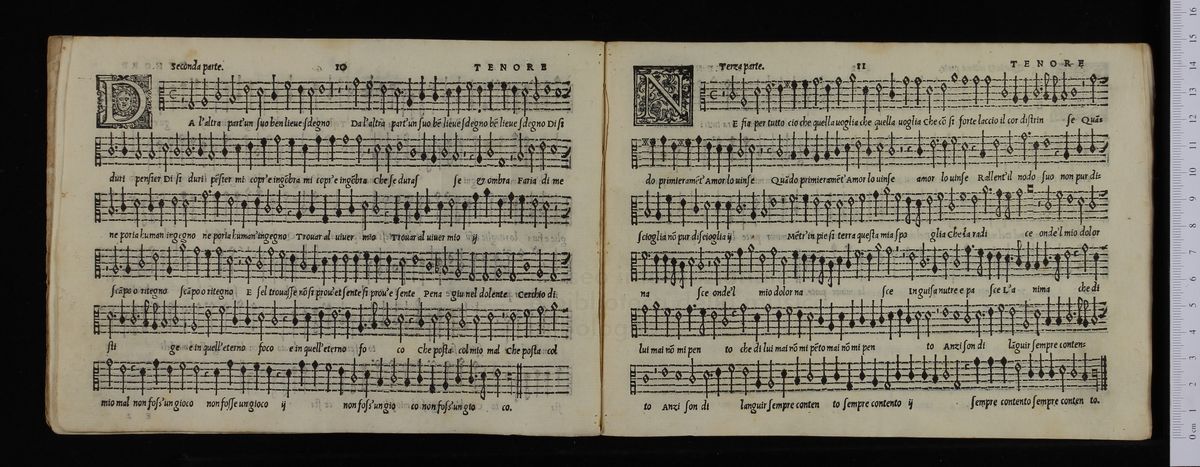 Seconda parte. 10 TENORE
DA l'altra part'un suo ben lieue sdegno Da l'altra part'un suo bē lieue sdegno bē lieue sdegno Di si
duri pensier Di si duri pēsier mi copr'e ingōbra mi copr'e ingōbra Che se duras se & ombra Faria di me
ne poria human ingegno ne poria human'ingegno Trouar al uiuer mio Trouar al uiuer mio ij
scāpo o ritegno scāpo o ritegno E sel trouasse nō si prou'et sente si prou'e sente Pena giu nel dolente Cerchio di
sti ge e in quell'eterno foco e in quell'eterno fo co Che posta col mio mal Che posta col
mio mal non foss'un gioco non fosse un gioco ij non foss'un gio co non foss'un gio co.
Terza parte. 11 TENORE
NE fia per tutto cio che quella uoglia che quella uoglia Che cō si forte laccio il cor distrin se Quās
do primieramēt'Amor lo uinse Quādo primieramēt'Amor lo uinse amor lo uinse Rallent'il nodo suo non pur dis
scioglia nō pur discioglia ij Mētr'in pie si terra questa mia spo glia Che fa radi ce onde'l mio dolor
na sce onde'l mio dolor na sce In guisa nutre e pa sce L'a nima che di
lui mai nō mi pen to che di lui mai nō mi pēto mai nō mi pen to Anzi son di lāguir sempre conten:
to Anzi son di languir sempre conten to sempre contento ij sempre contento sempre conten to.